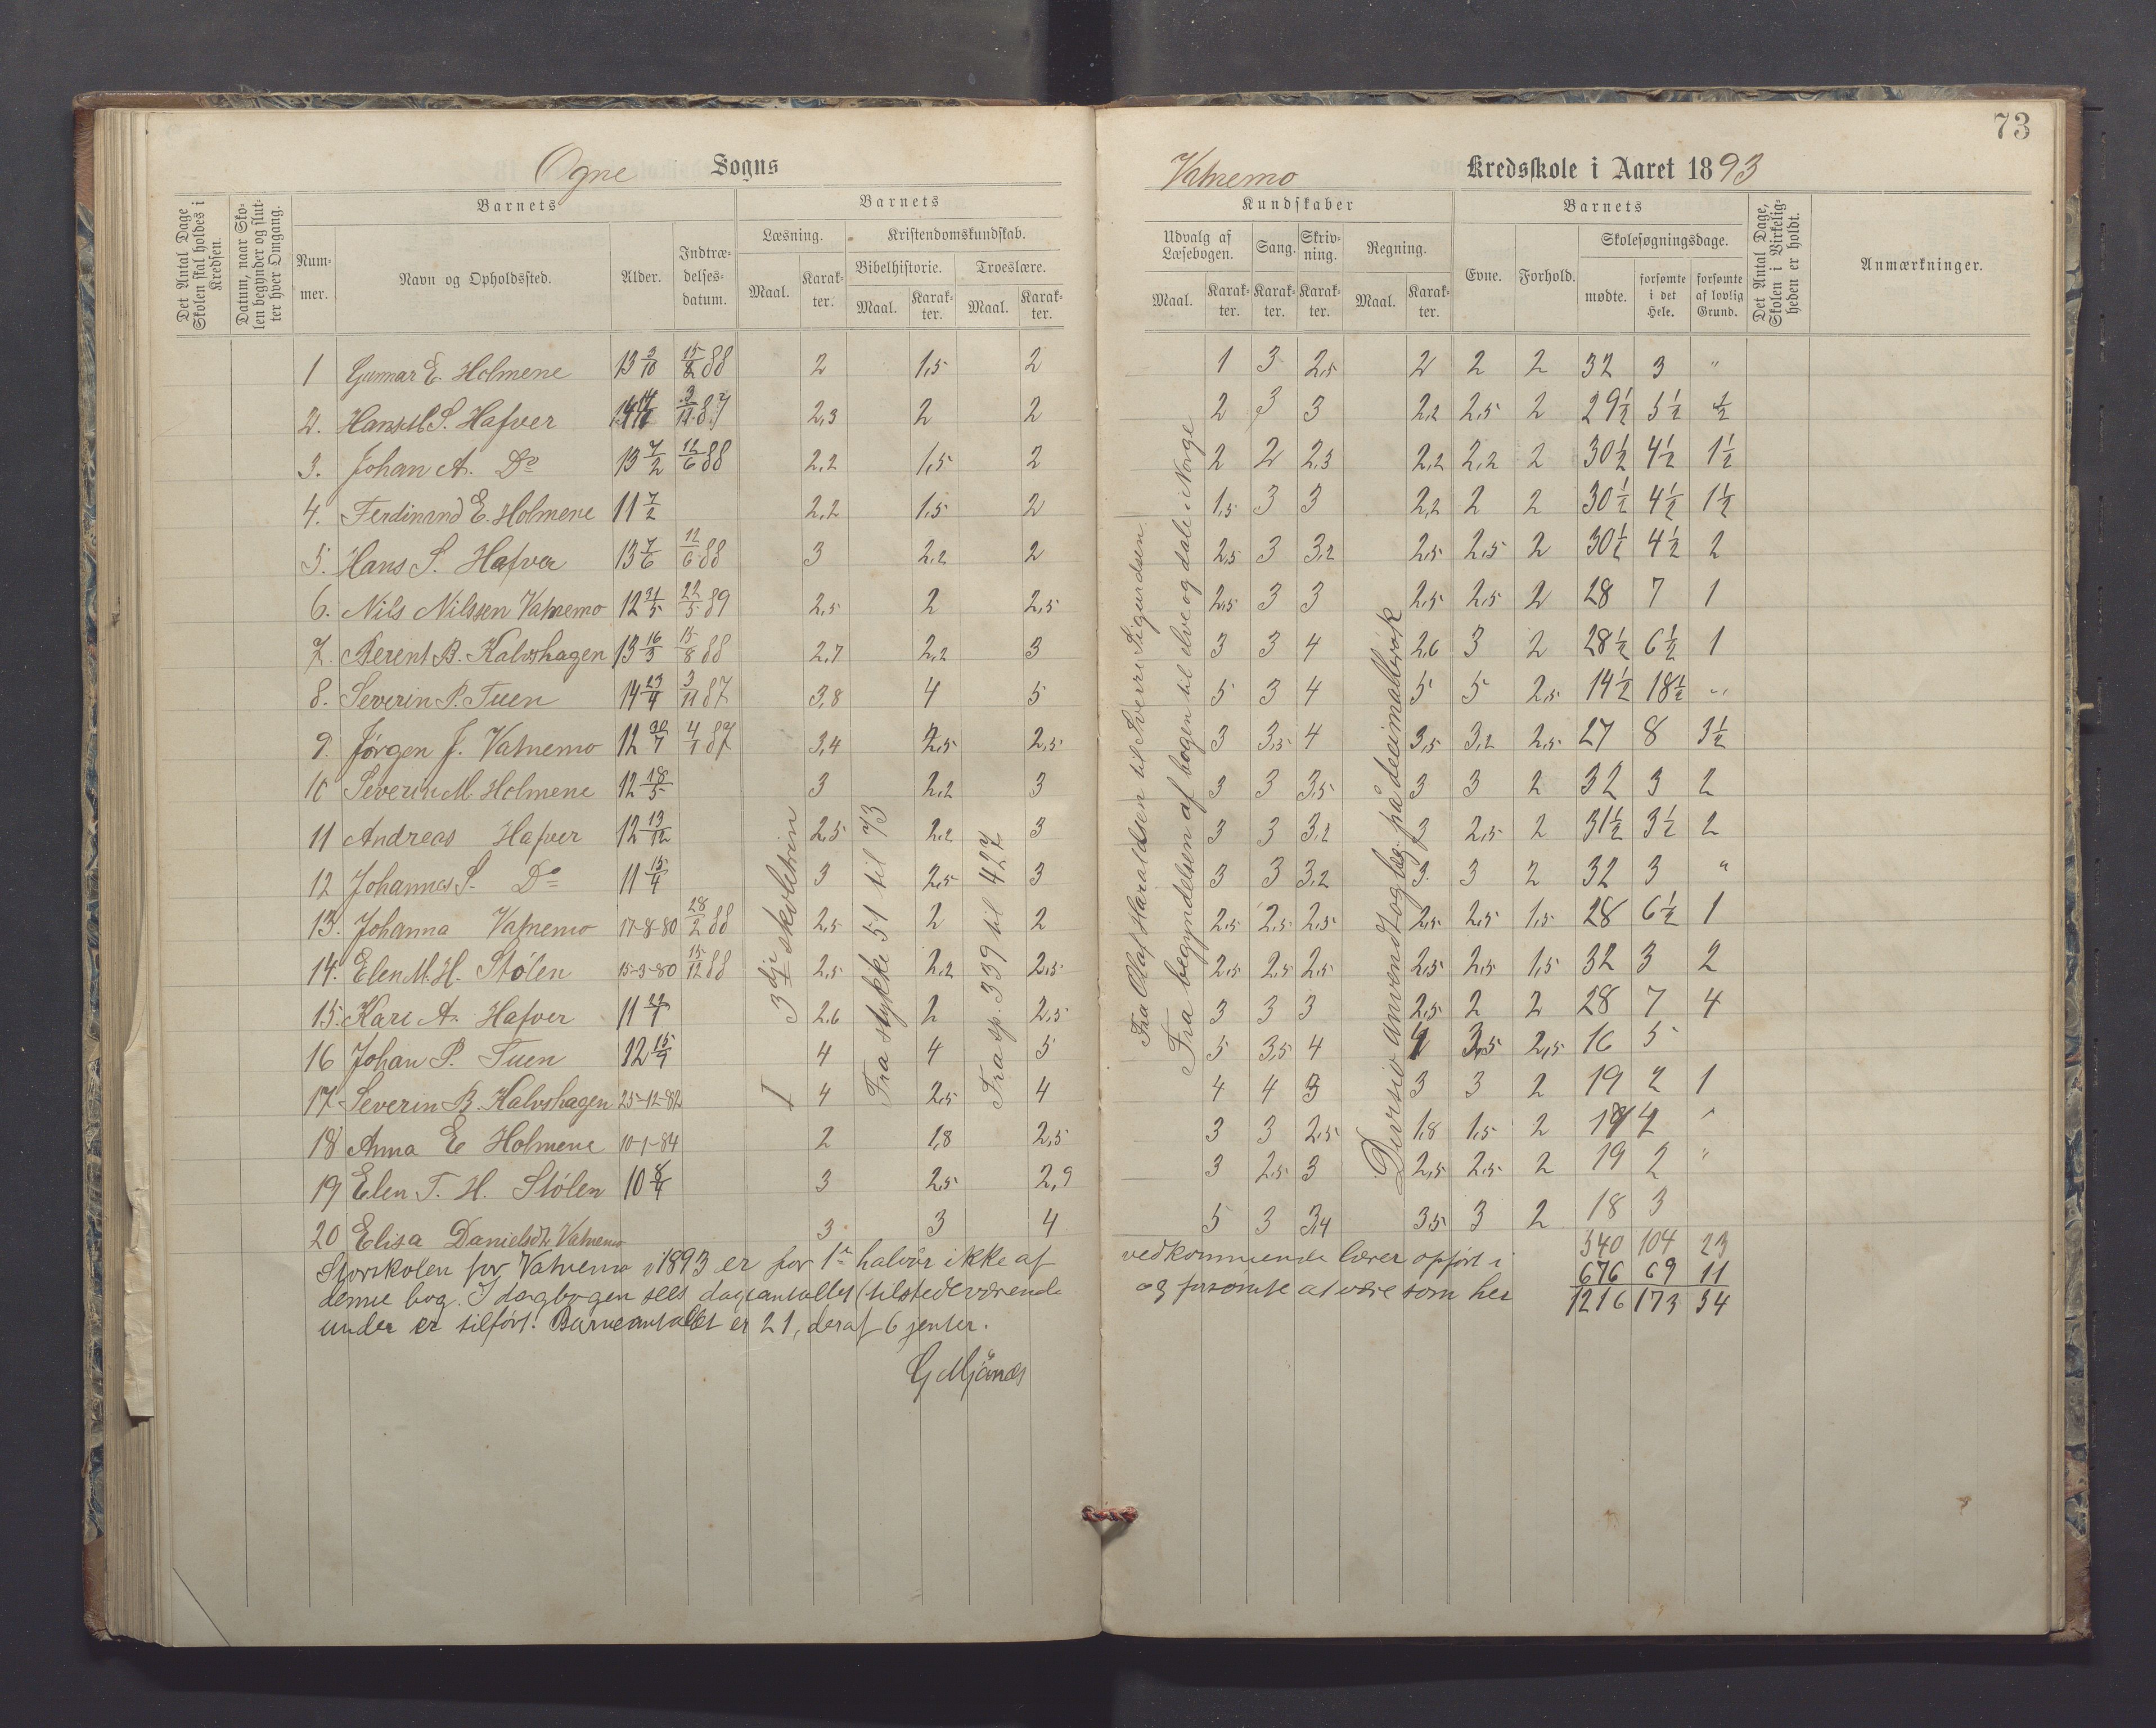 73
Ogne Sogns
Vatnemo Kredsskole i Aaret 1893
Det Antal Dage Skolen skal holdes i Kredsen.
Datum, naar Skolen begynder og slutter hver Omgang.
Barnets
Nummer.
Navn og Opholdssted.
Alder.
Indtrædelsesdatum.
Barnets
Læsning.
Maal.
Karakter.
Kristendomskundskab.
Bibelhistorie.
Maal.
Karakter.
Troeslære.
Maal.
Karakter.
Kundskaber
Udvalg af Læsebogen.
Maal.
Karakter.
Sang.
Karakter.
Skrivning.
Karakter.
Regning.
Maal.
Karakter.
Barnets
Evne.
Forhold.
Skolesøgningsdage.
mødte.
forsømte i det Hele.
forsømte af lovlig Grund.
Det Antal Dage, Skolen i Virkeligheden er holdt.
Anmærkninger.
1 Gunnar E. Holmene 13 3/10 15/8 88 2 1,5 2 1 3 2,5 2 2 2 32 3 "
2. Hans M. S. Hafver 14 3/11 87 2,3 2 2 2 3 3 2,2 2,5 2 29½ 5½ ½
3. Johan A. Do 13 7/2 12/6 88 2,2 1,5 2 2 2 2,3 2,2 2,2 2 30½ 4½ 1½
4. Ferdinand E. Holmene 11 7/2 2,2 1,5 2 1,5 3 3 2,2 2 2 30½ 4½ 1½
5. Hans S. Hafver 13 7/6 12/6 88 3 2,2 2 2,5 3 3,2 2,5 2,5 2 30½ 4½ 2
6. Nils Nilssen Vatnemo 12 31/5 22/5 89 2,5 2 2,5 2,5 3 3 2,5 2,5 2 28 7 1
7. Berent B. Kalvshagen 13 16/3 15/8 88 2,7 2,2 3 3 3 4 2,6 3 2 28½ 6½ 1
8. Severin P. Tuen 14 23/4 3/11 87 3,8 4 5 5 3 4 5 5 2,5 14½ 18½ "
9. Jørgen J. Vatnemo 12 30/7 4/1 87 3,4 2,5 2,5 3 3,5 4 3,5 3,2 2,5 27 8 3½
10 Severin M. Holmene 12 18/5 3 2,2 3 3 3 3,5 3 3 2 32 3 2
11 Andreas Hafver 12 13/12 2,5 2,2 3 3 3 3,2 3 2,5 2 31½ 3½ 2
12 Johannes S. Do 11 15/4 3 2,5 3 3 3 3,2 3. 3 2 32 3 "
13. Johanna Vatnemo 17-8-80 28/2 88 2,5 2 2 2,5 2,5 2,5 2,5 2,5 1,5 28 6½ 1
14. Elen M. H. Stølen 15-3-80 15/12 88 2,5 2,2 2,5 2,5 2,5 2,5 2,5 2,5 1,5 32 3 2
15. Kari A. Hafver 11 2,6 2 2,5 3 3 3 2,5 2 2 28 7 4
16 Johan P. Tuen 12 15/9 4 4 5 5 3,5 4 4 3,5 2,5 16 5
17 Severin B. Kalvshagen 25-12-82 I 4 2,5 4 4 4 3 3 3 2 19 2 1
18 Anna E Holmene 10-1-84 2 1,8 2,5 3 3 2,5 1,8 1,5 2 4 "
19 Elen T. H. Stølen 10 8/4 3 2,5 2,9 3 2,5 3 2,5 2,5 2 19 2 "
20 Elisa Danielsdtr Vatnemo 3 3 4 5 3 3,4 3,5 3 2 18 3
3dje skoletrin
Fra stykke 51 til 73
Fra sp. 339 til 427
Fra Olaf Haraldsen til Sverre Sigurdsen
Fra begyndelsen af bogen til elve og dale i Norge
Divisio anvendt og beg. på decimalbrøk
540 104 23
676 69 11
1216 173 34
Storskolen for Vatnemo i 1893 er for 1ste halvår ikke af vedkommende lærer opført i
denne bog. I dagbogen sees dageantallet (tilstedeværende og forsømte at være som her
under er tilført. Barneantallet er 21, deraf 6 jenter.
G Mjånes